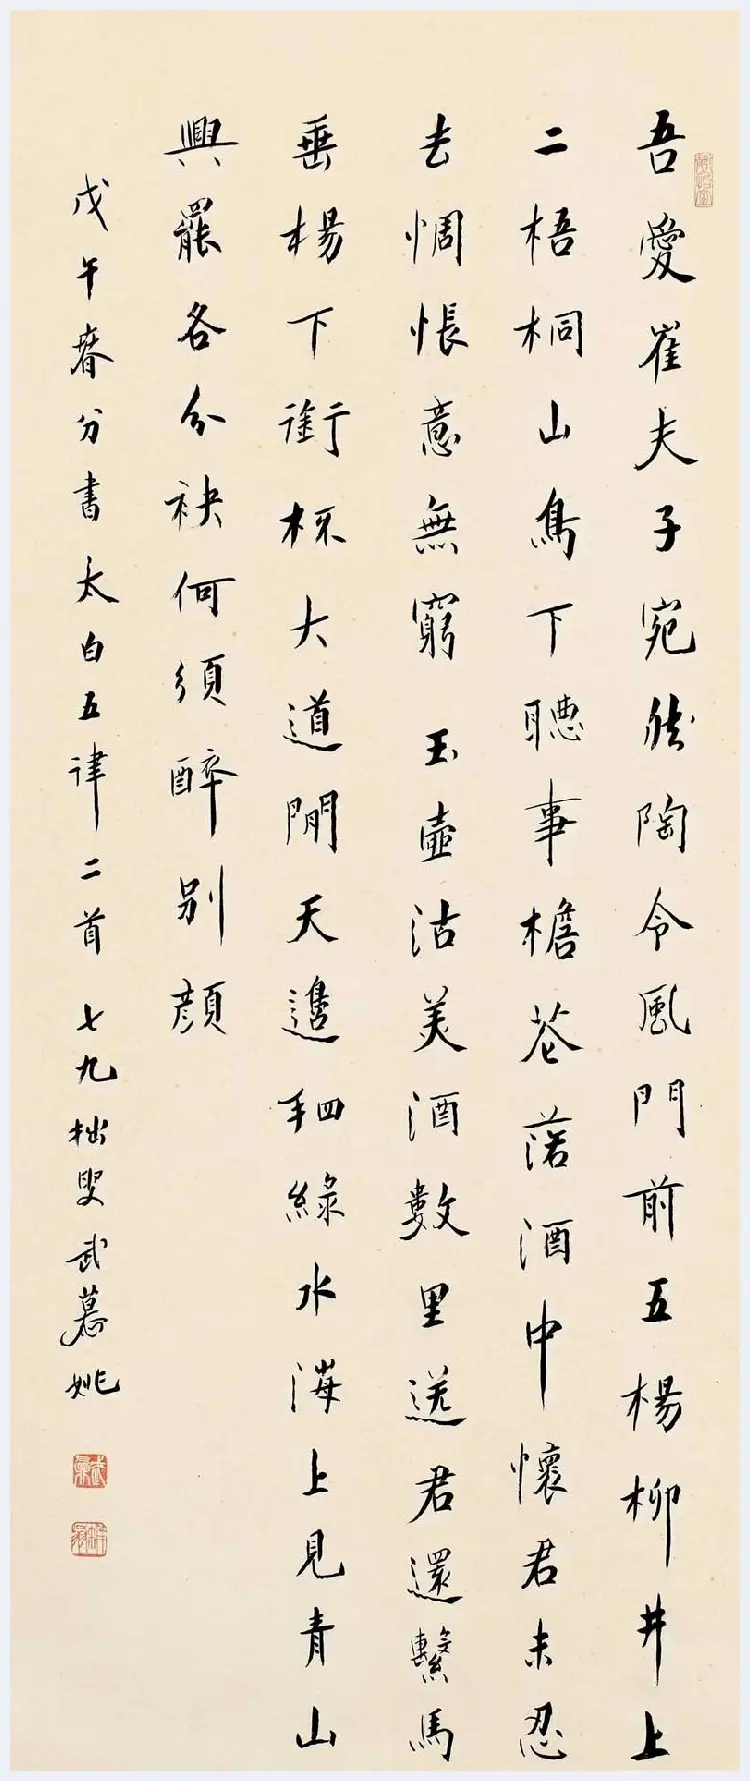 吾愛崔夫子宛然陶令風門前五楊柳井上
二梧桐山鳥下聽事檐花落酒中懷君未忍
去惆悵意無窮 玉壺沽美酒數里送君還繫馬
垂楊下銜杯大道閒天邊看綠水海上見青山
興罷各分袂何須醉別顏
戊午春分書太白五律二首 七九拙叟武慕姚